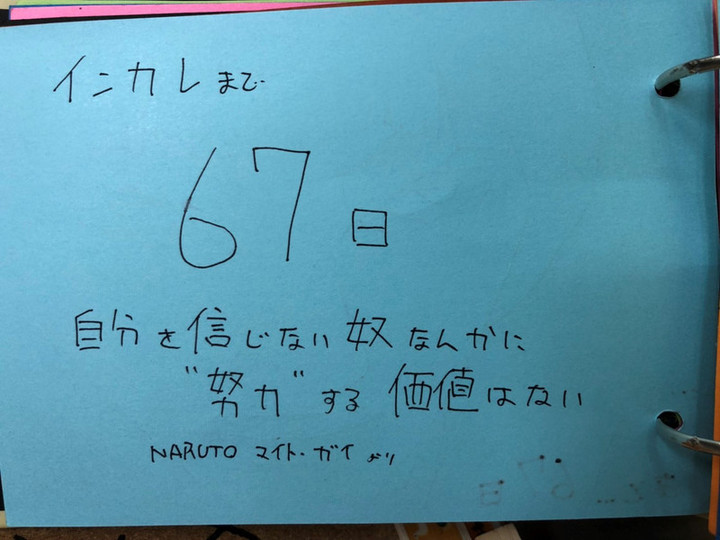 インカレまで
67日
自分を信じない奴なんかに
"努力"する価値はない
NARUTO マイト・ガイより